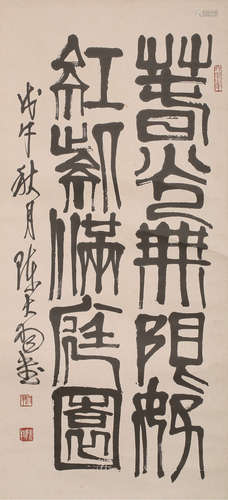 春光無限好
紅紫滿庭園
戊午秋月陳大羽書